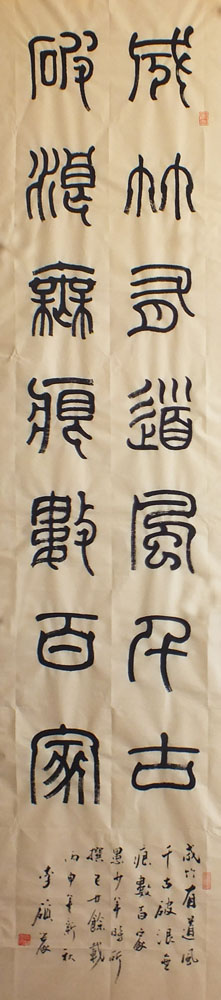 成竹有道風千古
破浪無痕數百家
成竹有道風
千古破浪無
痕數百家
愚少年時所
撰已廿餘載
丙申年新秋
李碩